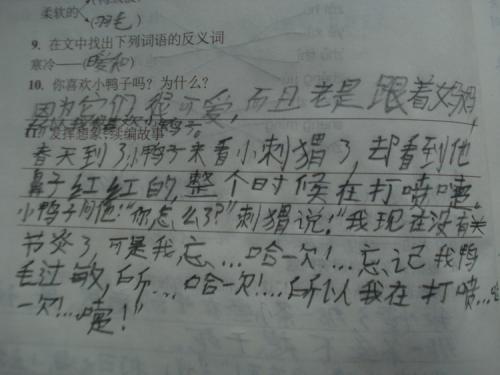 柔软的
(羽毛)
9. 在文中找出下列词语的反义词
寒冷——(暖和)
10. 你喜欢小鸭子吗？为什么？
因为它们很可爱，而且老是跟着妈妈
所以我很喜欢小鸭子。
11. 发挥想象，续编故事
春天到了小鸭子来看小刺猬了，却看到他
鼻子红红的，整个时候在打喷嚏。
小鸭子问他："你怎么了？"刺猬说："我现在没有关
节炎了可是我忘...哈一欠!...忘记我鸭
毛过敏，所...哈一欠!...所以我在打喷...
一欠!...嚏!"